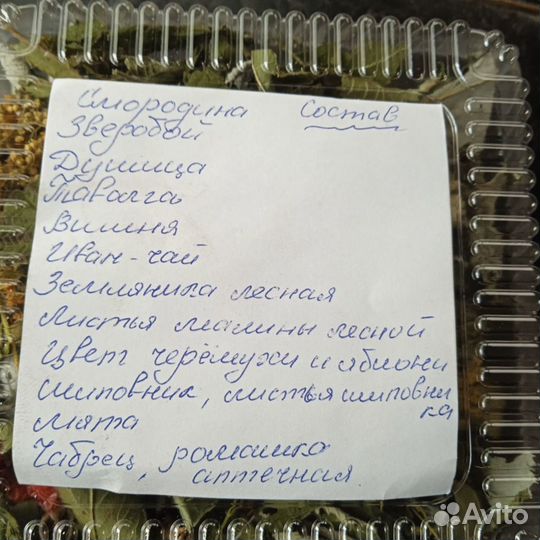 Состав
Смородина
Зверобой
Душица
Таволга
Вишня
Иван-чай
Земляника лесная
Листья малины лесной
Цвет черёмухи и яблони
Шиповник, листья шиповни
ка
Мята
Чабрец, ромашка
аптечная
Avito